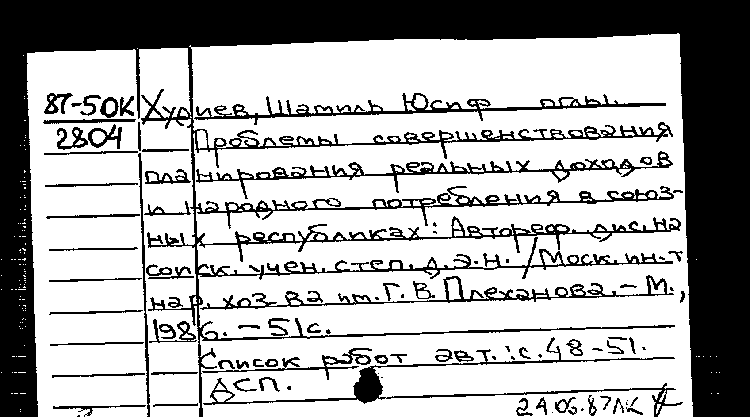 87-50К Худиев, Шамиль Юсиф оглы.
2804 Проблемы совершенствования
планирования реальных доходов
и народного потребления в союз-
ных республиках: Автореф. дис. на
соиск. учен. степ. д.э.н. / Моск. ин-т
нар. хоз-ва им. Г. В. Плеханова. - М.,
1986. - 51 с.
Список работ авт.: с. 48-51.
ДСП.
24.06.87